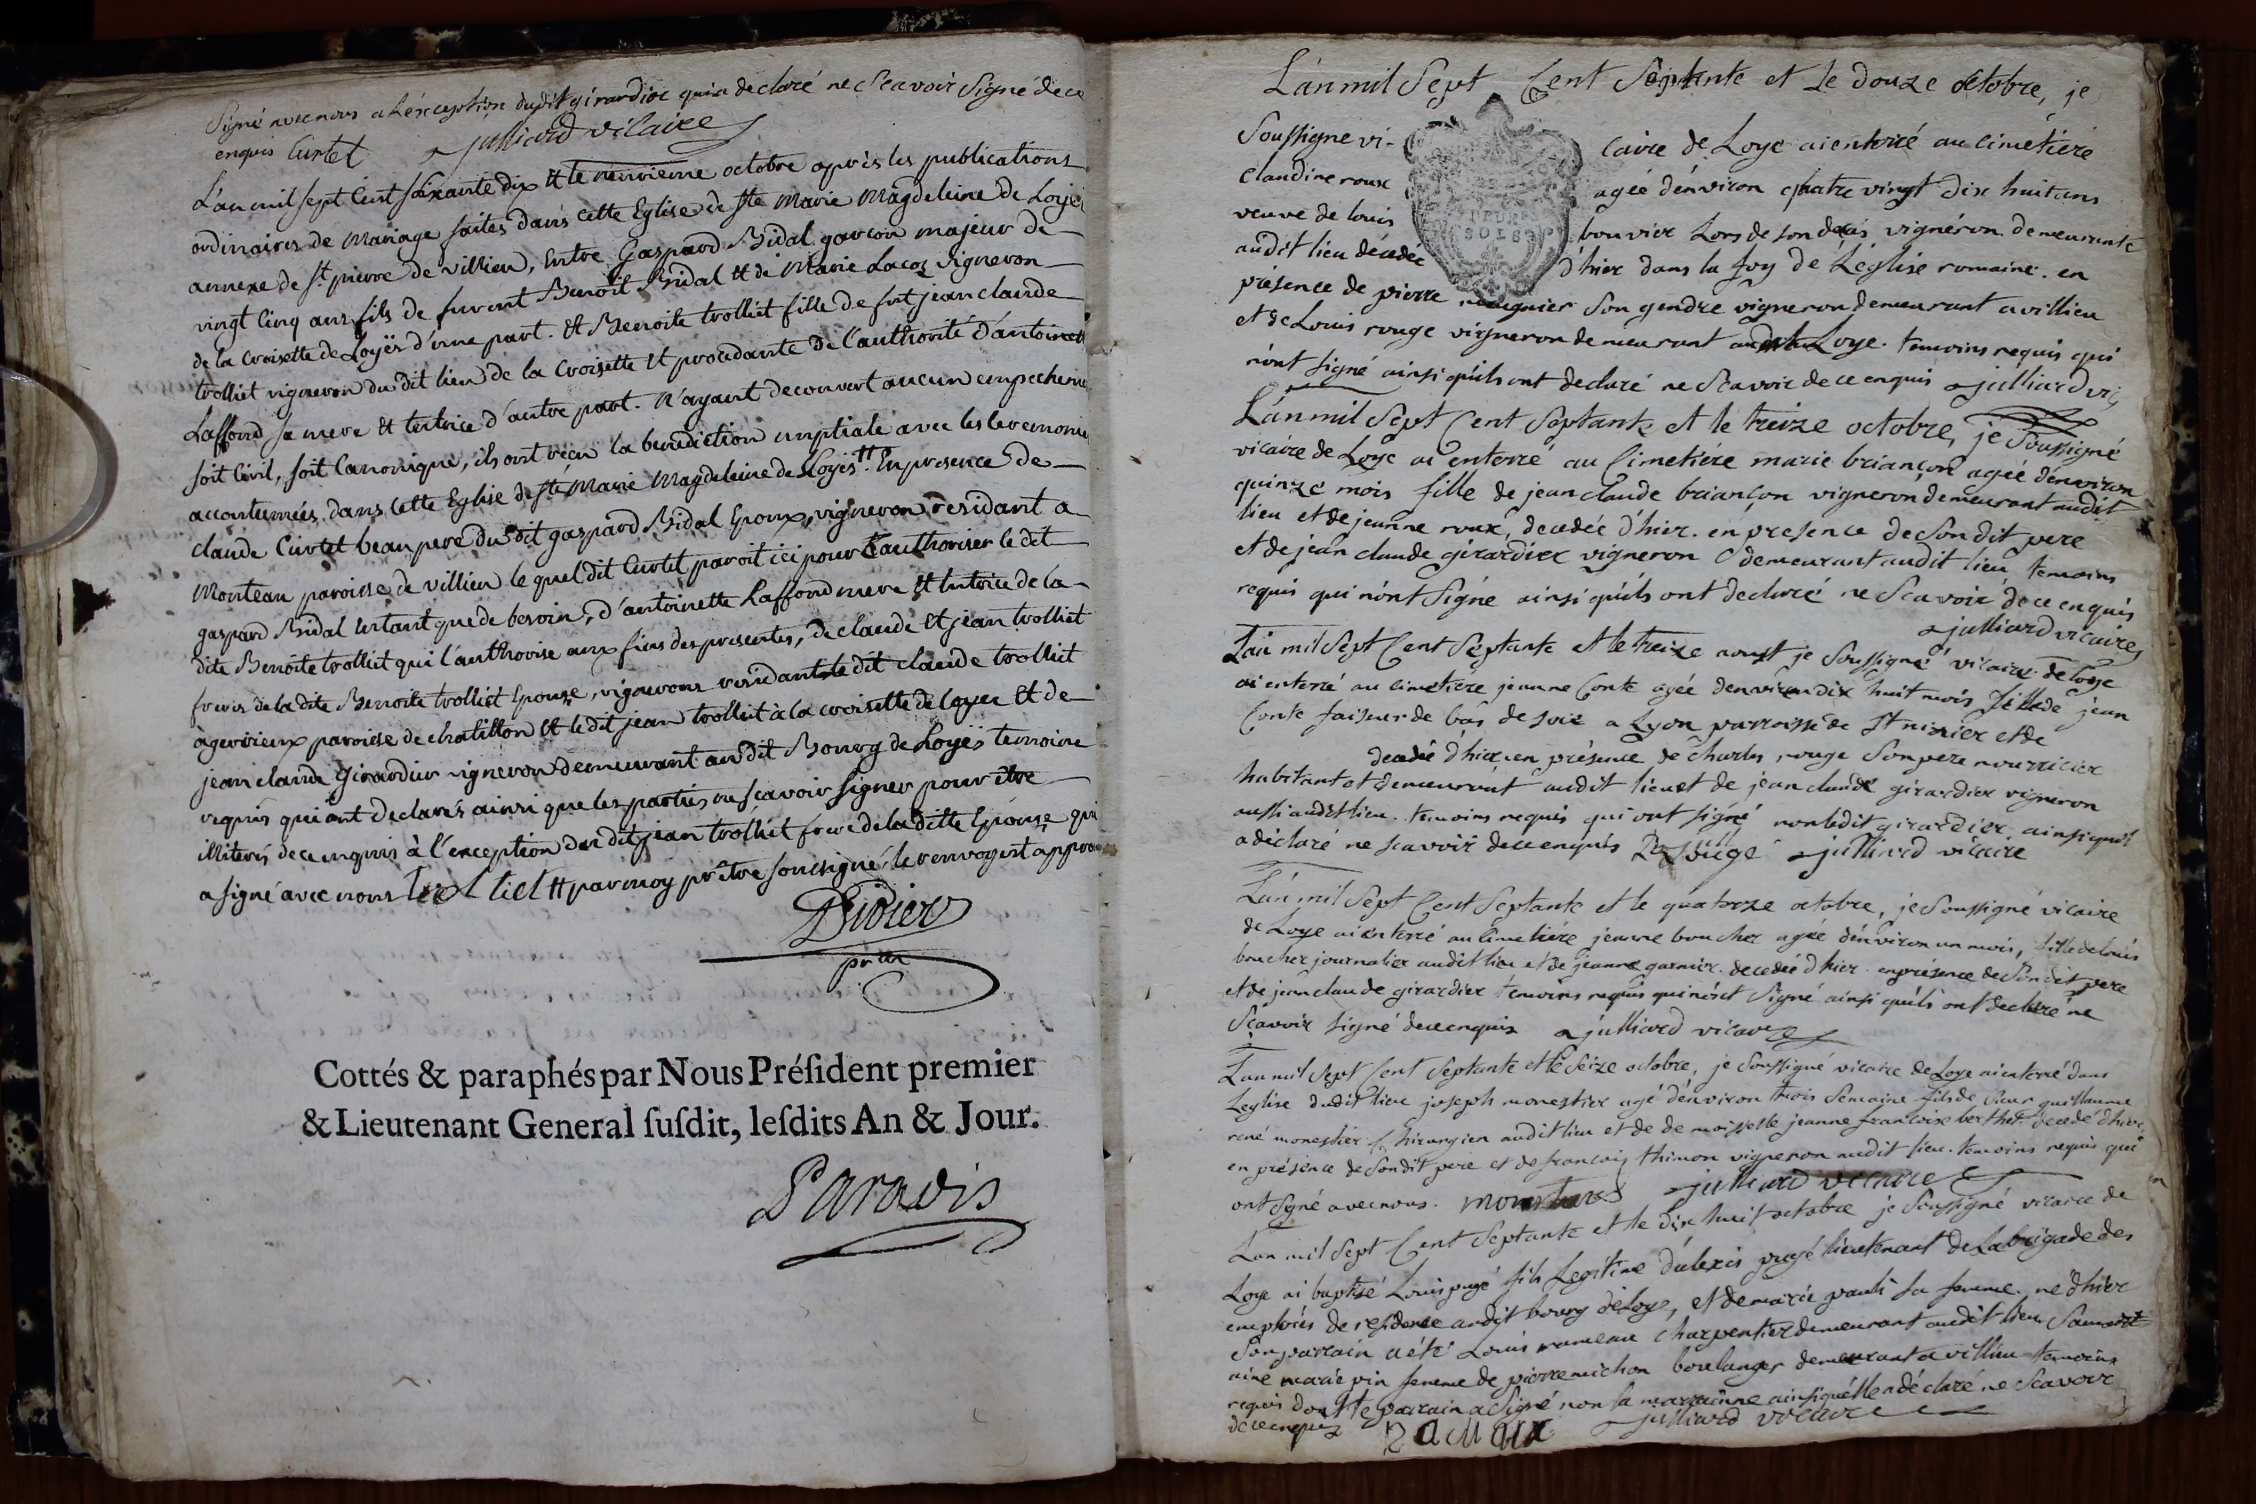 Signé avec nous a l'exception dudit girardier qui a declaré ne Scavoir Signé de ce
enquis Curtet julliard vicaire
L'an mil sept Cent soixante dix et le neuvieme octobre après les publications
ordinaires de Mariage faites dans cette Eglise de Ste Marie Magdeleine de Loyes
annexe de St pierre de villieu, Entre Gaspard Bidal garcon majeur de
vingt Cinq ans fils de furent Benoit Bidal et de Marie Lacoz vigneron
de la Croisette de Loyes d'une part. et Benoite trolliet fille de fut jean claude
trolliet vigneron du dit lieu de la Croisette et procedante de l'authorité d'antoinette
Laffond sa mere et tutrice d'autre part. N'ayant decouvert aucun empecheme
soit Civil, soit Canonique, ils ont reçu la benediction nuptiale avec les Ceremonie
accoutumées dans cette Eglise de Ste Marie Magdeleine de Loyes tt. En presence de
claude Curtet beau pere du dit gaspard Bidal Epoux, vigneron residant a
Monteau paroisse de villieu le quel dit Curtet paroit ici pour authoriser le dit
gaspard Bidal en tant que de besoin, d'antoinette Laffond mere et tutrice de la
dite Benoite trolliet qui l'authorise aux fins des presentes, de claude et jean trolliet
freres de la dite Benoite trolliet Epouse, vignerons residants le dit claude trolliet
a gevrieux paroisse de chatillon et le dit jean trolliet à la croisette de loyes et de
jean claude Girardier vigneron demeurant au dit Bourg de Loyes temoins
requis qui ont declarés ainsi que les parties ne scavoir signer pour être
illiterés de ce enquis à l'exception du dit jean trolliet frere de la ditte Epouse qui
a signé avec nous tt par moy prêtre soussigné, le renvoy est approu
Didier
ptre
Cottés & paraphés par Nous Préſident premier
& Lieutenant General ſuſdit, leſdits An & Jour.
Paradis
L'an mil Sept Cent Septante et Le douze octobre, je
Soussigne vi- caire de Loye ai enterré au cimetiére
claudine roux agée d'environ quatre vingt dix huit ans
veuve de louis bouvier Lors de son decés vignéron demeurante
audit lieu decedée d'hier dans la foy de L'eglise romaine. en
présence de pierre meugnier Son gendre vigneron demeurant a villieu
et de Louis rouge vigneron demeurant Loye. temoins requis qui
n'ont signé ainsi qu'ils ont declaré ne Scavoir de ce enquis julliard vic
L'an mil Sept Cent Septante et le treize octobre, je Soussigné
vicaire de Loye ai enterré au Cimetiére marie briançon agée d'environ
quinze mois fille de jean claude briançon vigneron demeurant audit
lieu et de jeanne roux, decedée d'hier. en présence de Son dit pere
et de jean claude girardier vigneron demeurant audit lieu temoins
requis qui n'ont Signé ainsi qu'ils ont declaré ne Scavoir de ce enquis
julliard vicaire
L'an mil Sept Cent Septante et le treize aoust je Soussigné vicaire de loye
ai enterré au cimetiére jeanne Conte agée d'environ dix huit mois fille de jean
Conte faiseur de bas de soie a Lyon parroisse de St nizier et de
decedée d'hier. en présence de charles rouge Son pere nourricier
habitant et demeurant audit lieu et de jean claude girardier vigneron
aussi audit lieu. temoins requis qui ont signé non ledit girardier ainsi qu'il
a déclaré ne scavoir de ce enquis Rouge julliard vicaire
L'an mil Sept Cent Septante et le quatorze octobre, je Soussigné vicaire
de Loye ai enterré au Cimetiére jeanne boucher agée d'environ un mois, fille de louis
boucher journalier audit lieu et de jeanne garnier. decedée d'hier. en présence de Son dit pere
et de jean claude girardier temoins requis qui n'ont Signé ainsi qu'ils ont declaré ne
Scavoir signé de ce enquis julliard vicaire
L'an mil Sept Cent Septante et le Seize octobre, je Soussigné vicaire de Loye ai enterré dans
L'eglise dudit lieu joseph monestier agé d'environ trois Semaine fils de Sieur guillaume
rené monestier Chirurgien audit lieu et de demoiselle jeanne francoise berthet. decedé d'hier,
en présence de Son dit pere et de francois thimon vigneron audit lieu. temoins requis qui
ont Signé avec nous. Monestier julliard vicaire
L'an mil Sept Cent Septante et le Dix huit octobre je Soussigné vicaire de
Loye ai baptisé Louis pugé fils Legitime d'alexis pugé lieutenant de La brigade des
emploiés de residence audit bourg de Loye, et de marie pauli sa femme. né d'hier
Son parrain a été Louis rameau charpentier demeurant audit lieu Sa marr
aine marie pin femme de pierre michon boulanger demeurant a villieu temoins
requis dont le parrain a Signé non la marrainne ainsi qu'elle a déclaré ne Scavoir
de ce enquis julliard vicaire